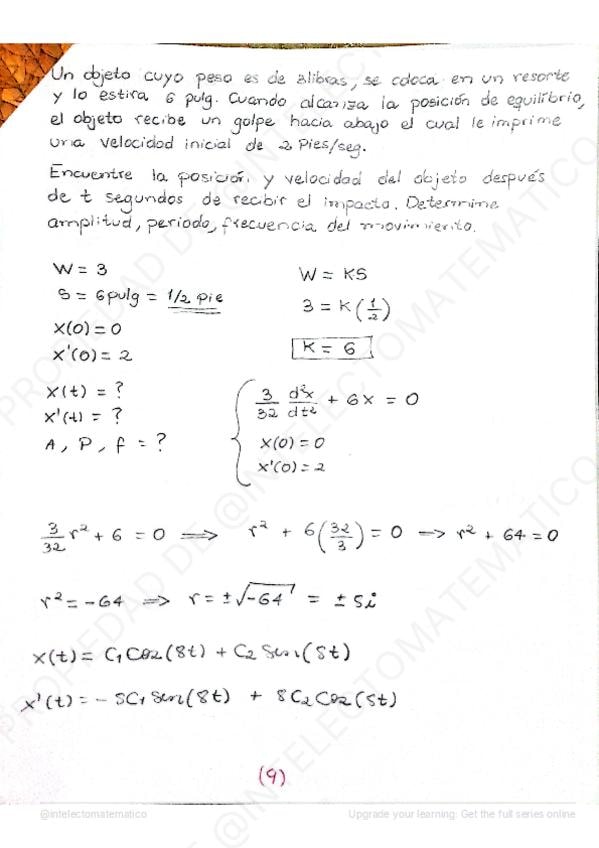 Un objeto cuyo peso es de 3 libras, se coloca en un resorte
y lo estira 6 pulg. Cuando alcanza la posición de equilibrio,
el objeto recibe un golpe hacia abajo el cual le imprime
una velocidad inicial de 2 Pies/seg.
Encuentre la posición y velocidad del objeto después
de t segundos de recibir el impacto. Determine
amplitud, periodo, frecuencia del movimiento.
W = 3
S = 6 pulg = 1/2 pie
X(0) = 0
X'(0) = 2
X(t) = ?
X'(t) = ?
A, P, f = ?
W = KS
3 = K (1/2)
K = 6
3/32 d²x/dt² + 6x = 0
X(0) = 0
X'(0) = 2
3/32 r² + 6 = 0 ⟹ r² + 6(32/3) = 0 → r² + 64 = 0
r² = -64 ⟹ r = ±√-64 = ± 8i
X(t) = C₁ Cos(8t) + C₂ Sen(8t)
X'(t) = - 8C₁ Sen(8t) + 8C₂ Cos(8t)
(9)
@intelectomatematico
Upgrade your learning: Get the full series online
PROPIEDAD DE @INTELECTOMATEMATICO